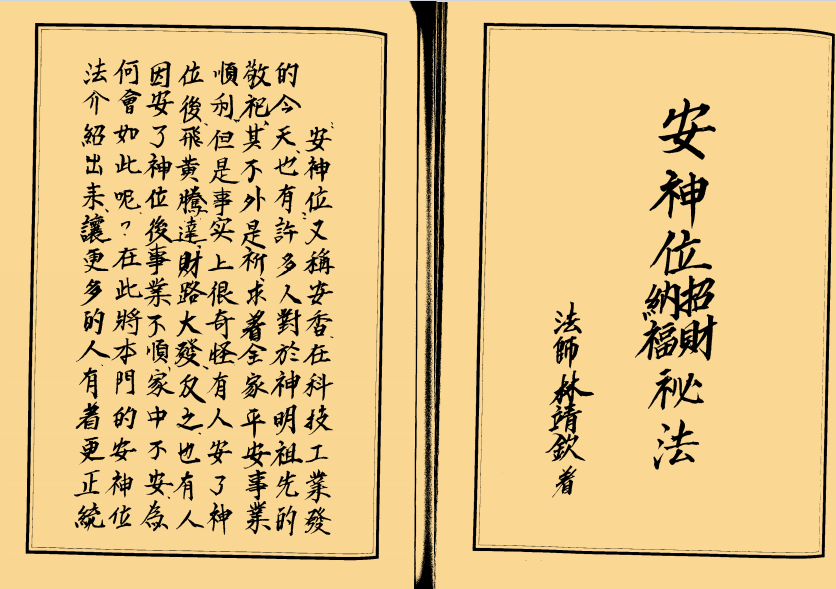 安神位招財納福秘法
法師林靖欽著
安神位又稱安香、在科技工業發
的今天、也有許多人對於神明祖先的
敬祀、其不外是祈求着全家平安事業
順利、但是事实上很奇怪有人安了神
位後、飛黄騰達、財路大發、反之也有人
因安了神位後事業不順、家中不安、為
何會如此呢？在此將本門的安神位
法介紹出来、讓更多的人有着更正統